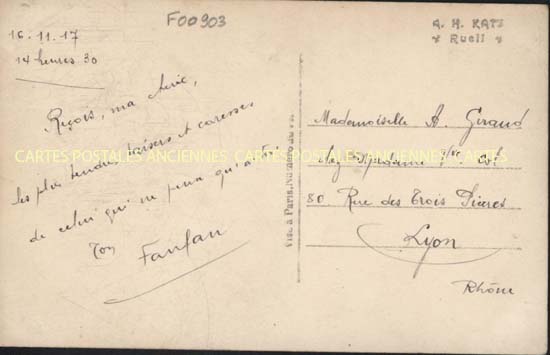 F00903
A. H. KATZ
Rueil
16.11.17
14 heures 30
Reçois, ma chérie,
les plus tendres baisers et caresses
de celui qui ne pense qu'à toi
Ton
Fanfan
CARTES POSTALES ANCIENNES CARTES POSTALES ANCIENNES CARTES POSTALES ANCIENNES
Visé à Paris, Numéro au verso
Mademoiselle A. Giraud
chez Madame
80 Rue des Trois Pierres
Lyon
Rhône